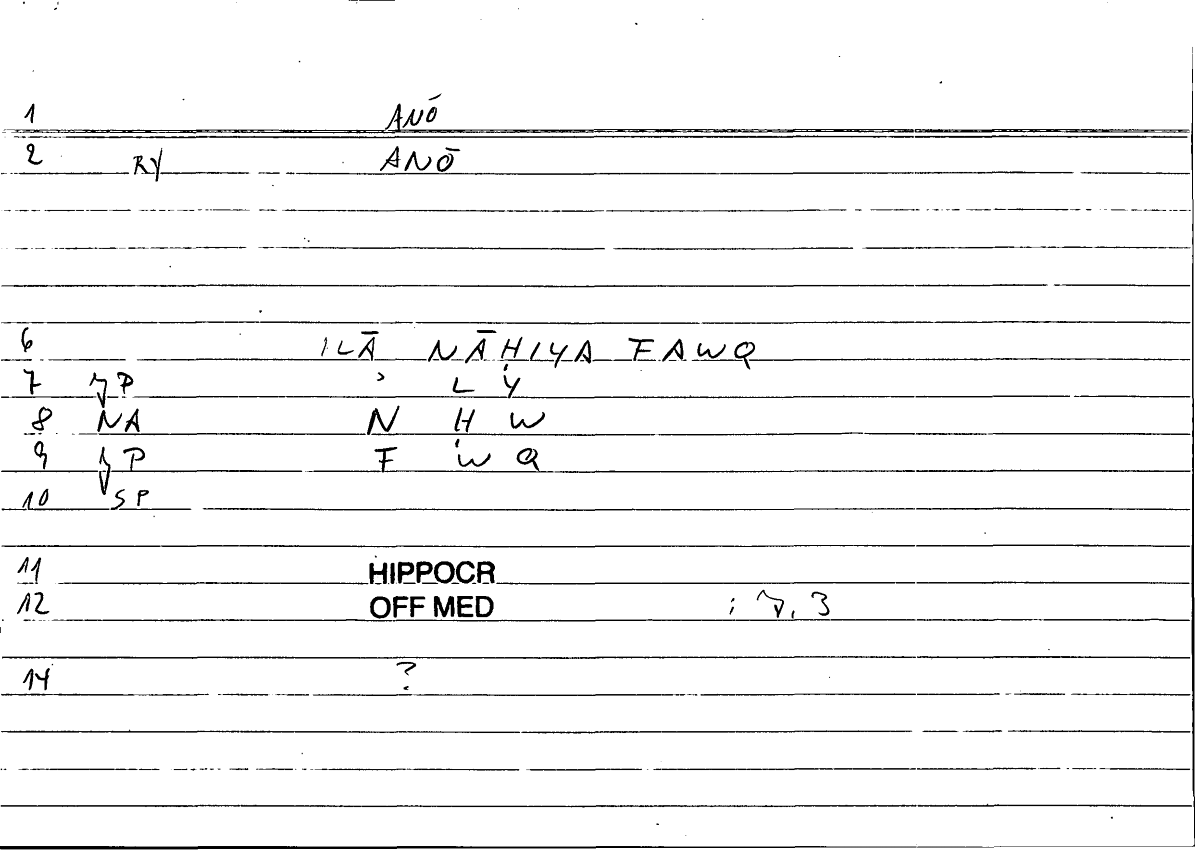 1 ANŌ
2 RY ANŌ
6 ILĀ NĀḤIYA FAWQ
7 P ʾ L Y
8 NA N Ḥ W
9 P F W Q
10 SP
11 HIPPOCR
12 OFF MED ; , 3
14 ?